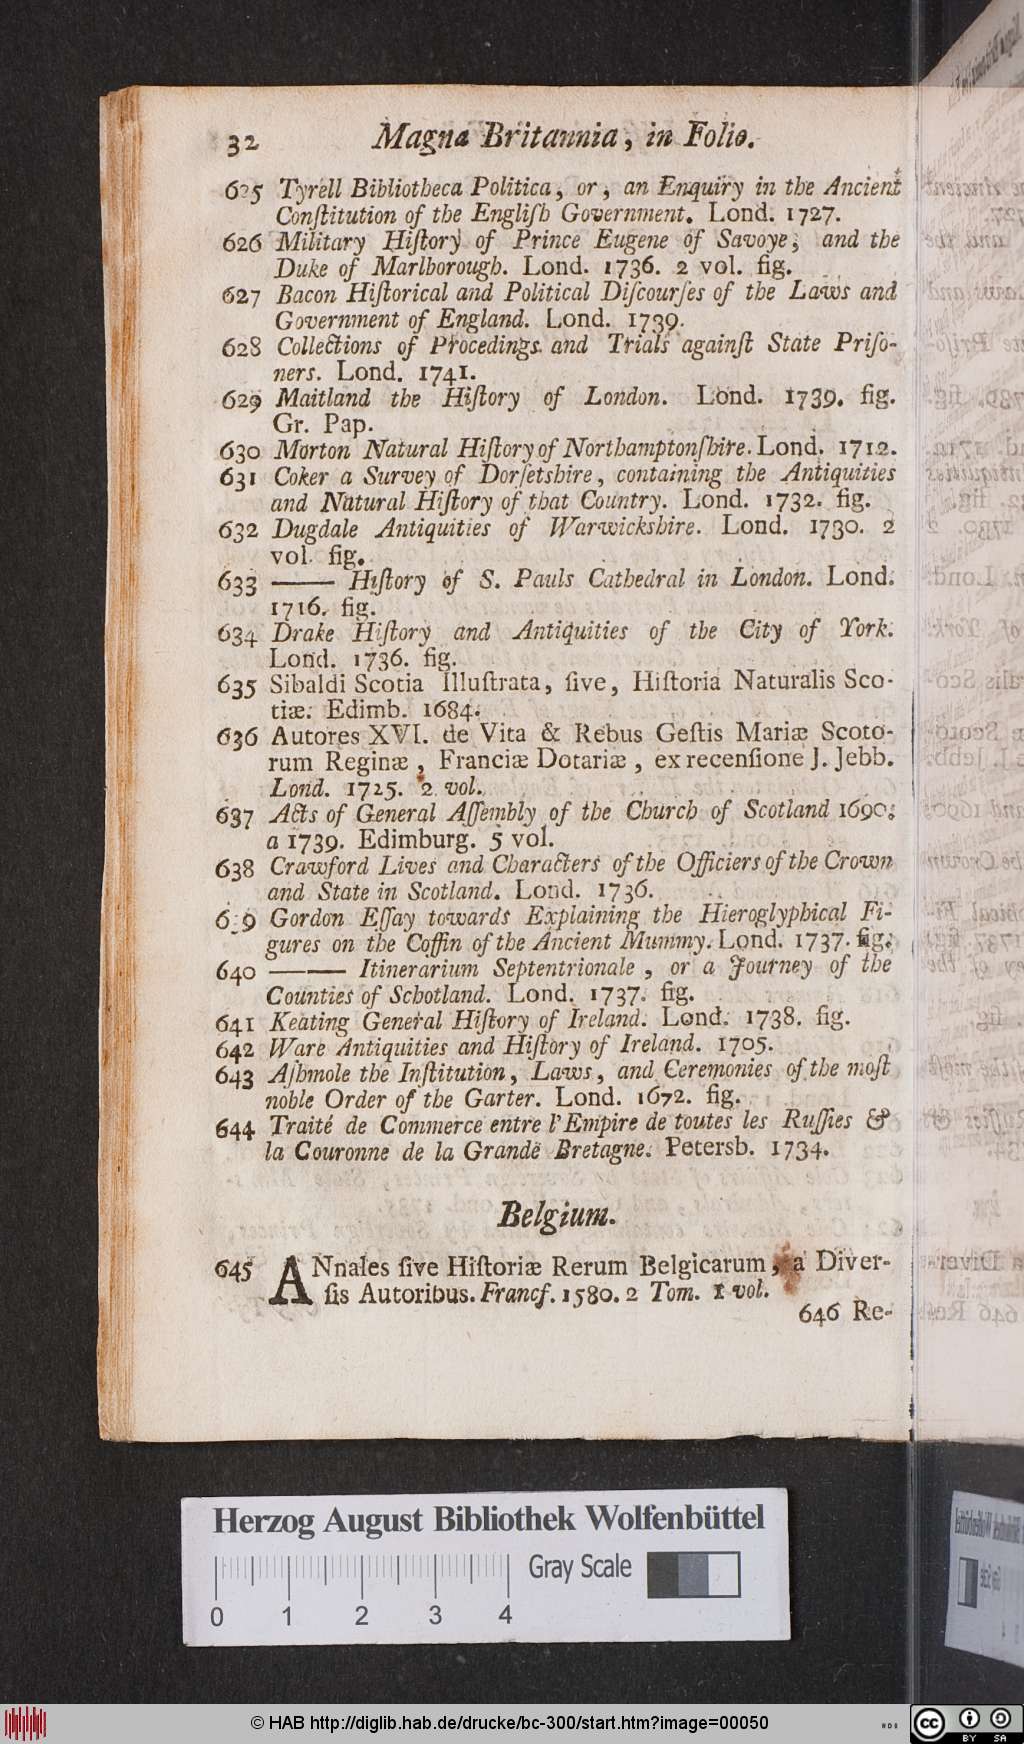 32 Magna Britannia, in Folio.
625 Tyrell Bibliotheca Politica, or, an Enquiry in the Ancient
Conſtitution of the Engliſh Government. Lond. 1727.
626 Military Hiſtory of Prince Eugene of Savoye, and the
Duke of Marlborough. Lond. 1736. 2 vol. fig.
627 Bacon Hiſtorical and Political Diſcourſes of the Laws and
Government of England. Lond. 1739.
628 Collections of Procedings and Trials againſt State Priſo-
ners. Lond. 1741.
629 Maitland the Hiſtory of London. Lond. 1739. fig.
Gr. Pap.
630 Morton Natural Hiſtory of Northamptonſhire. Lond. 1712.
631 Coker a Survey of Dorſetshire, containing the Antiquities
and Natural Hiſtory of that Country. Lond. 1732. fig.
632 Dugdale Antiquities of Warwickshire. Lond. 1730. 2
vol. fig.
633 —— Hiſtory of S. Pauls Cathedral in London. Lond.
1716. fig.
634 Drake Hiſtory and Antiquities of the City of York.
Lond. 1736. fig.
635 Sibaldi Scotia Illuſtrata, ſive, Hiſtoria Naturalis Sco-
tiæ. Edimb. 1684.
636 Autores XVI. de Vita & Rebus Geſtis Mariæ Scoto-
rum Reginæ, Franciæ Dotariæ, ex recenſione J. Jebb.
Lond. 1725. 2 vol.
637 Acts of General Aſſembly of the Church of Scotland 1690.
a 1739. Edimburg. 5 vol.
638 Crawford Lives and Characters of the Officiers of the Crown
and State in Scotland. Lond. 1736.
639 Gordon Eſſay towards Explaining the Hieroglyphical Fi-
gures on the Coffin of the Ancient Mummy. Lond. 1737. fig.
640 —— Itinerarium Septentrionale, or a Journey of the
Counties of Schotland. Lond. 1737. fig.
641 Keating General Hiſtory of Ireland. Lond. 1738. fig.
642 Ware Antiquities and Hiſtory of Ireland. 1705.
643 Aſhmole the Inſtitution, Laws, and Ceremonies of the moſt
noble Order of the Garter. Lond. 1672. fig.
644 Traité de Commerce entre l'Empire de toutes les Ruſſies &
la Couronne de la Grande Bretagne. Petersb. 1734.
Belgium.
645 ANnales ſive Hiſtoriæ Rerum Belgicarum, a Diver-
ſis Autoribus. Francf. 1580. 2 Tom. 1 vol.
646 Re-
Herzog August Bibliothek Wolfenbüttel
Gray Scale
0 1 2 3 4
© HAB http://diglib.hab.de/drucke/bc-300/start.htm?image=00050
cc BY SA